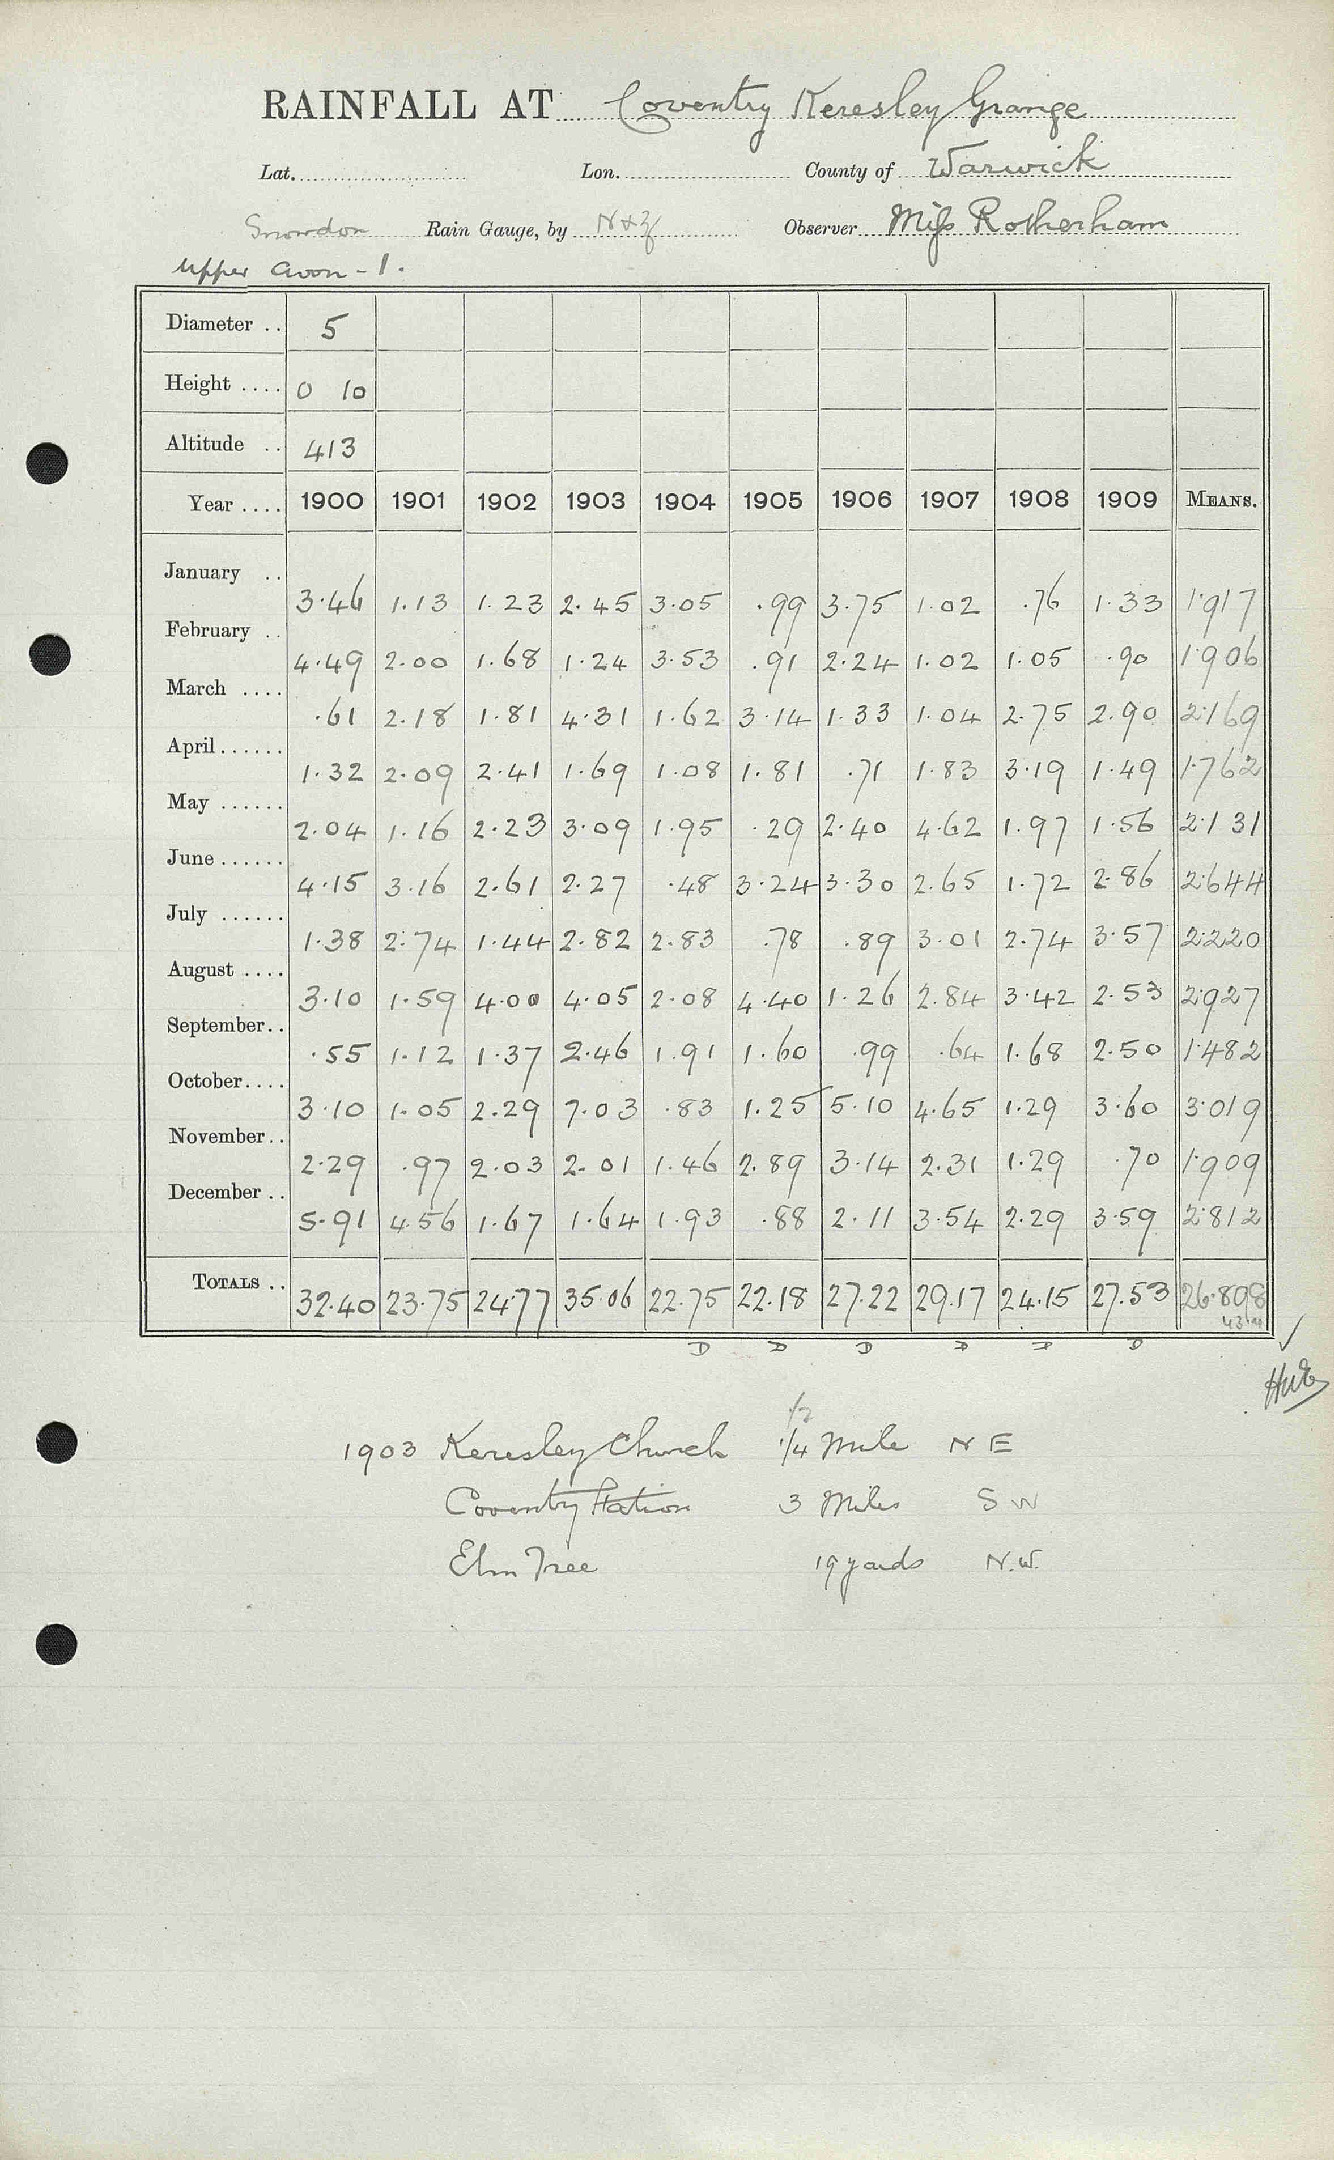 RAINFALL AT Coventry Keresley Grange
Lat. Lon. County of Warwick
Snowdon Rain Gauge, by N & Z Observer Miss Rotherham
Upper Avon - 1.
Diameter .. 5
Height .... 0 10
Altitude .. 413
Year .... 1900 1901 1902 1903 1904 1905 1906 1907 1908 1909 MEANS.
January .. 3.46 1.13 1.23 2.45 3.05 .99 3.75 1.02 .76 1.33 1.917
February .. 4.49 2.00 1.68 1.24 3.53 .91 2.24 1.02 1.05 .90 1.906
March .... .61 2.18 1.81 4.31 1.62 3.14 1.33 1.04 2.75 2.90 2.169
April ...... 1.32 2.09 2.41 1.69 1.08 1.81 .71 1.83 3.19 1.49 1.762
May ...... 2.04 1.16 2.23 3.09 1.95 .29 2.40 4.62 1.97 1.56 2.131
June ...... 4.15 3.16 2.61 2.27 .48 3.24 3.30 2.65 1.72 2.86 2.644
July ...... 1.38 2.74 1.44 2.82 2.83 .78 .89 3.01 2.74 3.57 2.220
August .... 3.10 1.59 4.00 4.05 2.08 4.40 1.26 2.84 3.42 2.53 2.927
September .. .55 1.12 1.37 2.46 1.91 1.60 .99 .64 1.68 2.50 1.482
October .... 3.10 1.05 2.29 7.03 .83 1.25 5.10 4.65 1.29 3.60 3.019
November .. 2.29 .97 2.03 2.01 1.46 2.89 3.14 2.31 1.29 .70 1.909
December .. 5.91 4.56 1.67 1.64 1.93 .88 2.11 3.54 2.29 3.59 2.812
TOTALS .. 32.40 23.75 24.77 35.06 22.75 22.18 27.22 29.17 24.15 27.53 26.898
D D D D D D
1/2
1903 Keresley Church 1/4 Mile N E
Coventry Station 3 Miles S W
Elm Tree 19 yards N.W.